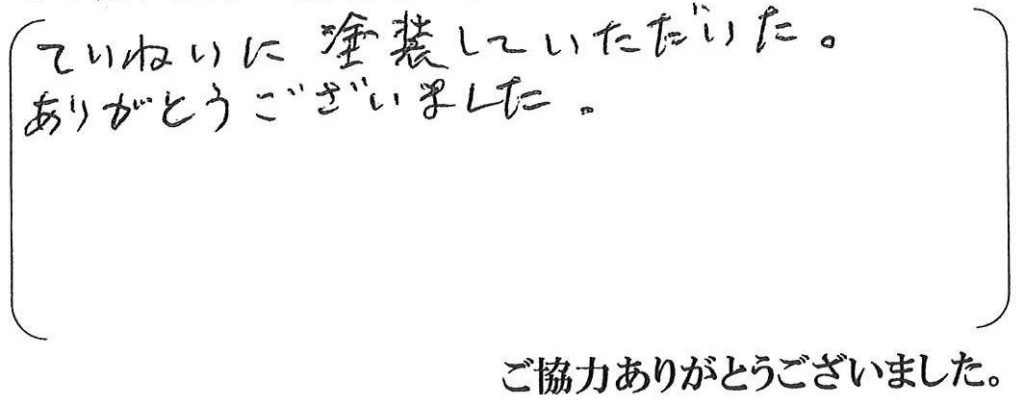 ていねいに塗装していただいた。
ありがとうございました。
ご協力ありがとうございました。